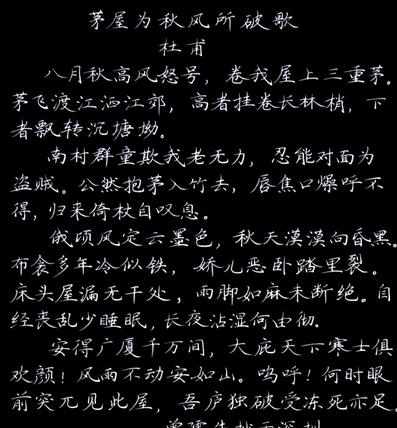 茅屋为秋风所破歌
杜甫
八月秋高风怒号，卷我屋上三重茅。
茅飞渡江洒江郊，高者挂卷长林梢，下
者飘转沉塘坳。
南村群童欺我老无力，忍能对面为
盗贼。公然抱茅入竹去，唇焦口燥呼不
得，归来倚杖自叹息。
俄顷风定云墨色，秋天漠漠向昏黑。
布衾多年冷似铁，娇儿恶卧踏里裂。
床头屋漏无干处，雨脚如麻未断绝。自
经丧乱少睡眠，长夜沾湿何由彻。
安得广厦千万间，大庇天下寒士俱
欢颜！风雨不动安如山。呜呼！何时眼
前突兀见此屋，吾庐独破受冻死亦足。